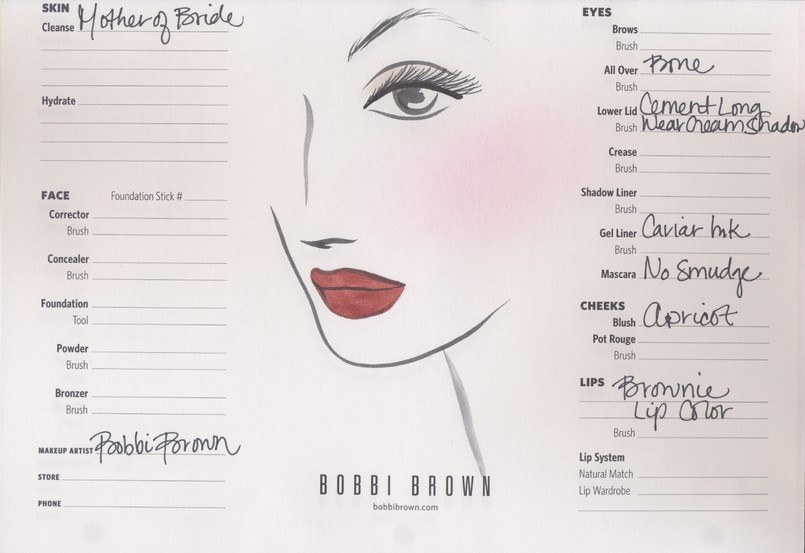 SKIN
Cleanse Mother of Bride
Hydrate
FACE Foundation Stick #
Corrector
Brush
Concealer
Brush
Foundation
Tool
Powder
Brush
Bronzer
Brush
MAKEUP ARTIST Bobbi Brown
STORE
PHONE
BOBBI BROWN
bobbibrown.com
EYES
Brows
Brush
All Over Bone
Brush
Lower Lid Cement Long
Brush Wear Cream Shadow
Crease
Brush
Shadow Liner
Brush
Gel Liner Caviar Ink
Brush
Mascara No Smudge
CHEEKS
Blush Apricot
Pot Rouge
Brush
LIPS Brownie
Lip Color
Brush
Lip System
Natural Match
Lip Wardrobe